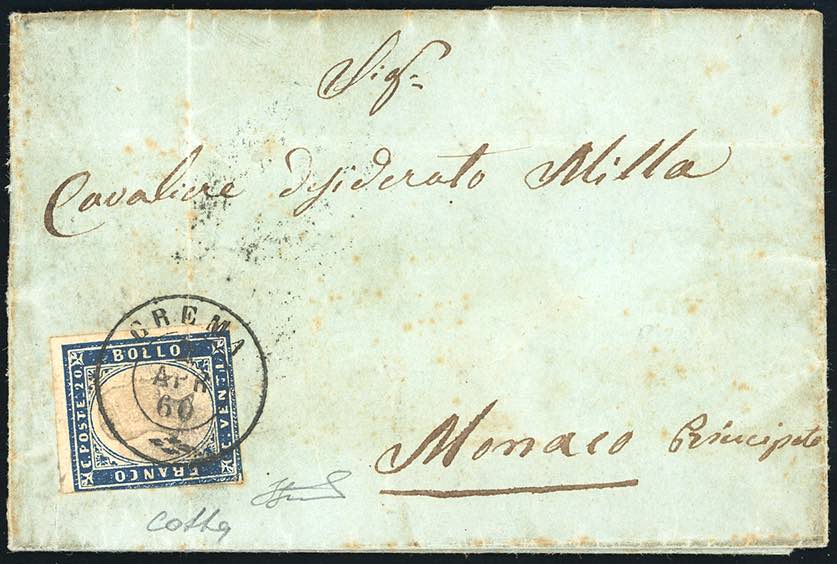 Sigr.
Cavaliere desiderato Milla
CREMA
APR
60
BOLLO
C. POSTE. 20.
C. VENTI.
FRANCO
Monaco Principato